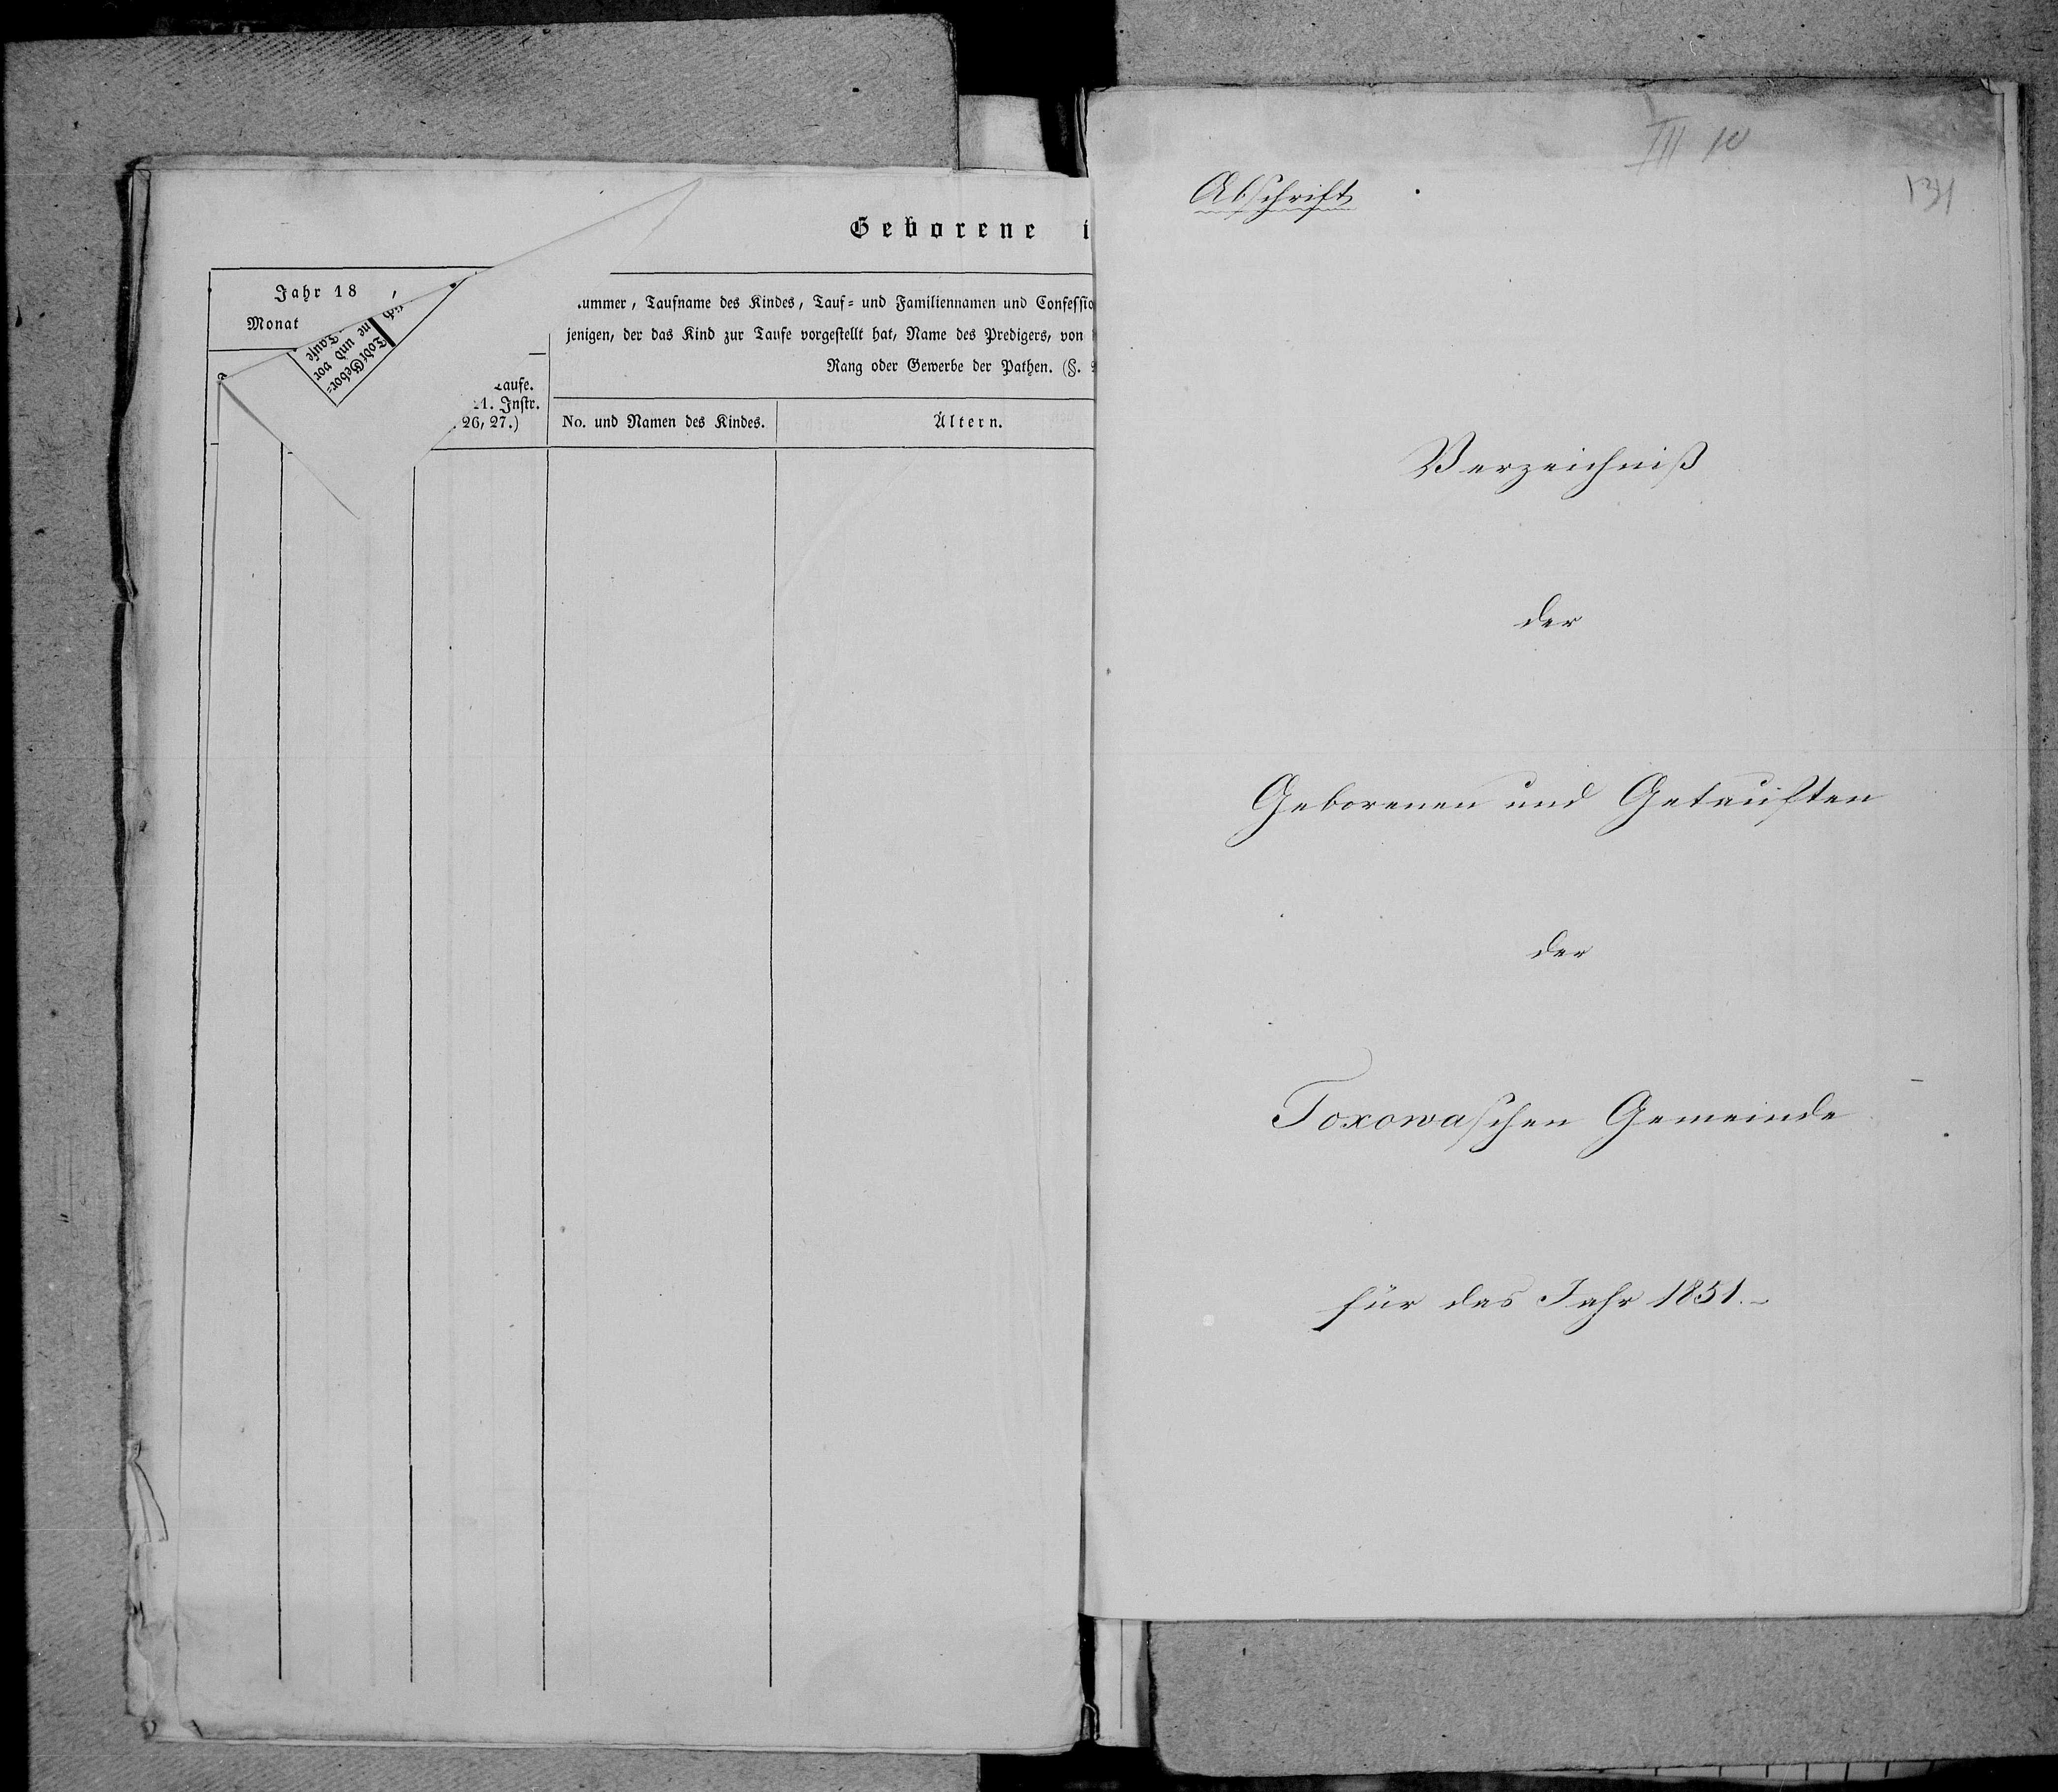 Geborene i
Jahr 18
Monat
Todt Gebor=
ne und vor
Taufe
.ummer, Taufname des Kindes, Tauf= und Familiennamen und Confessio
jenigen, der das Kind zur Taufe vorgestellt hat, Name des Predigers, von
Rang oder Gewerbe der Pathen. (§.
Taufe.
21. Instr.
26, 27.)
No. und Namen des Kindes.
Ältern.
III 10
131
Abschrift
Verzeichniß
der
Geborenen und Getauften
der
Toxowaschen Gemeinde
für das Jahr 1851.